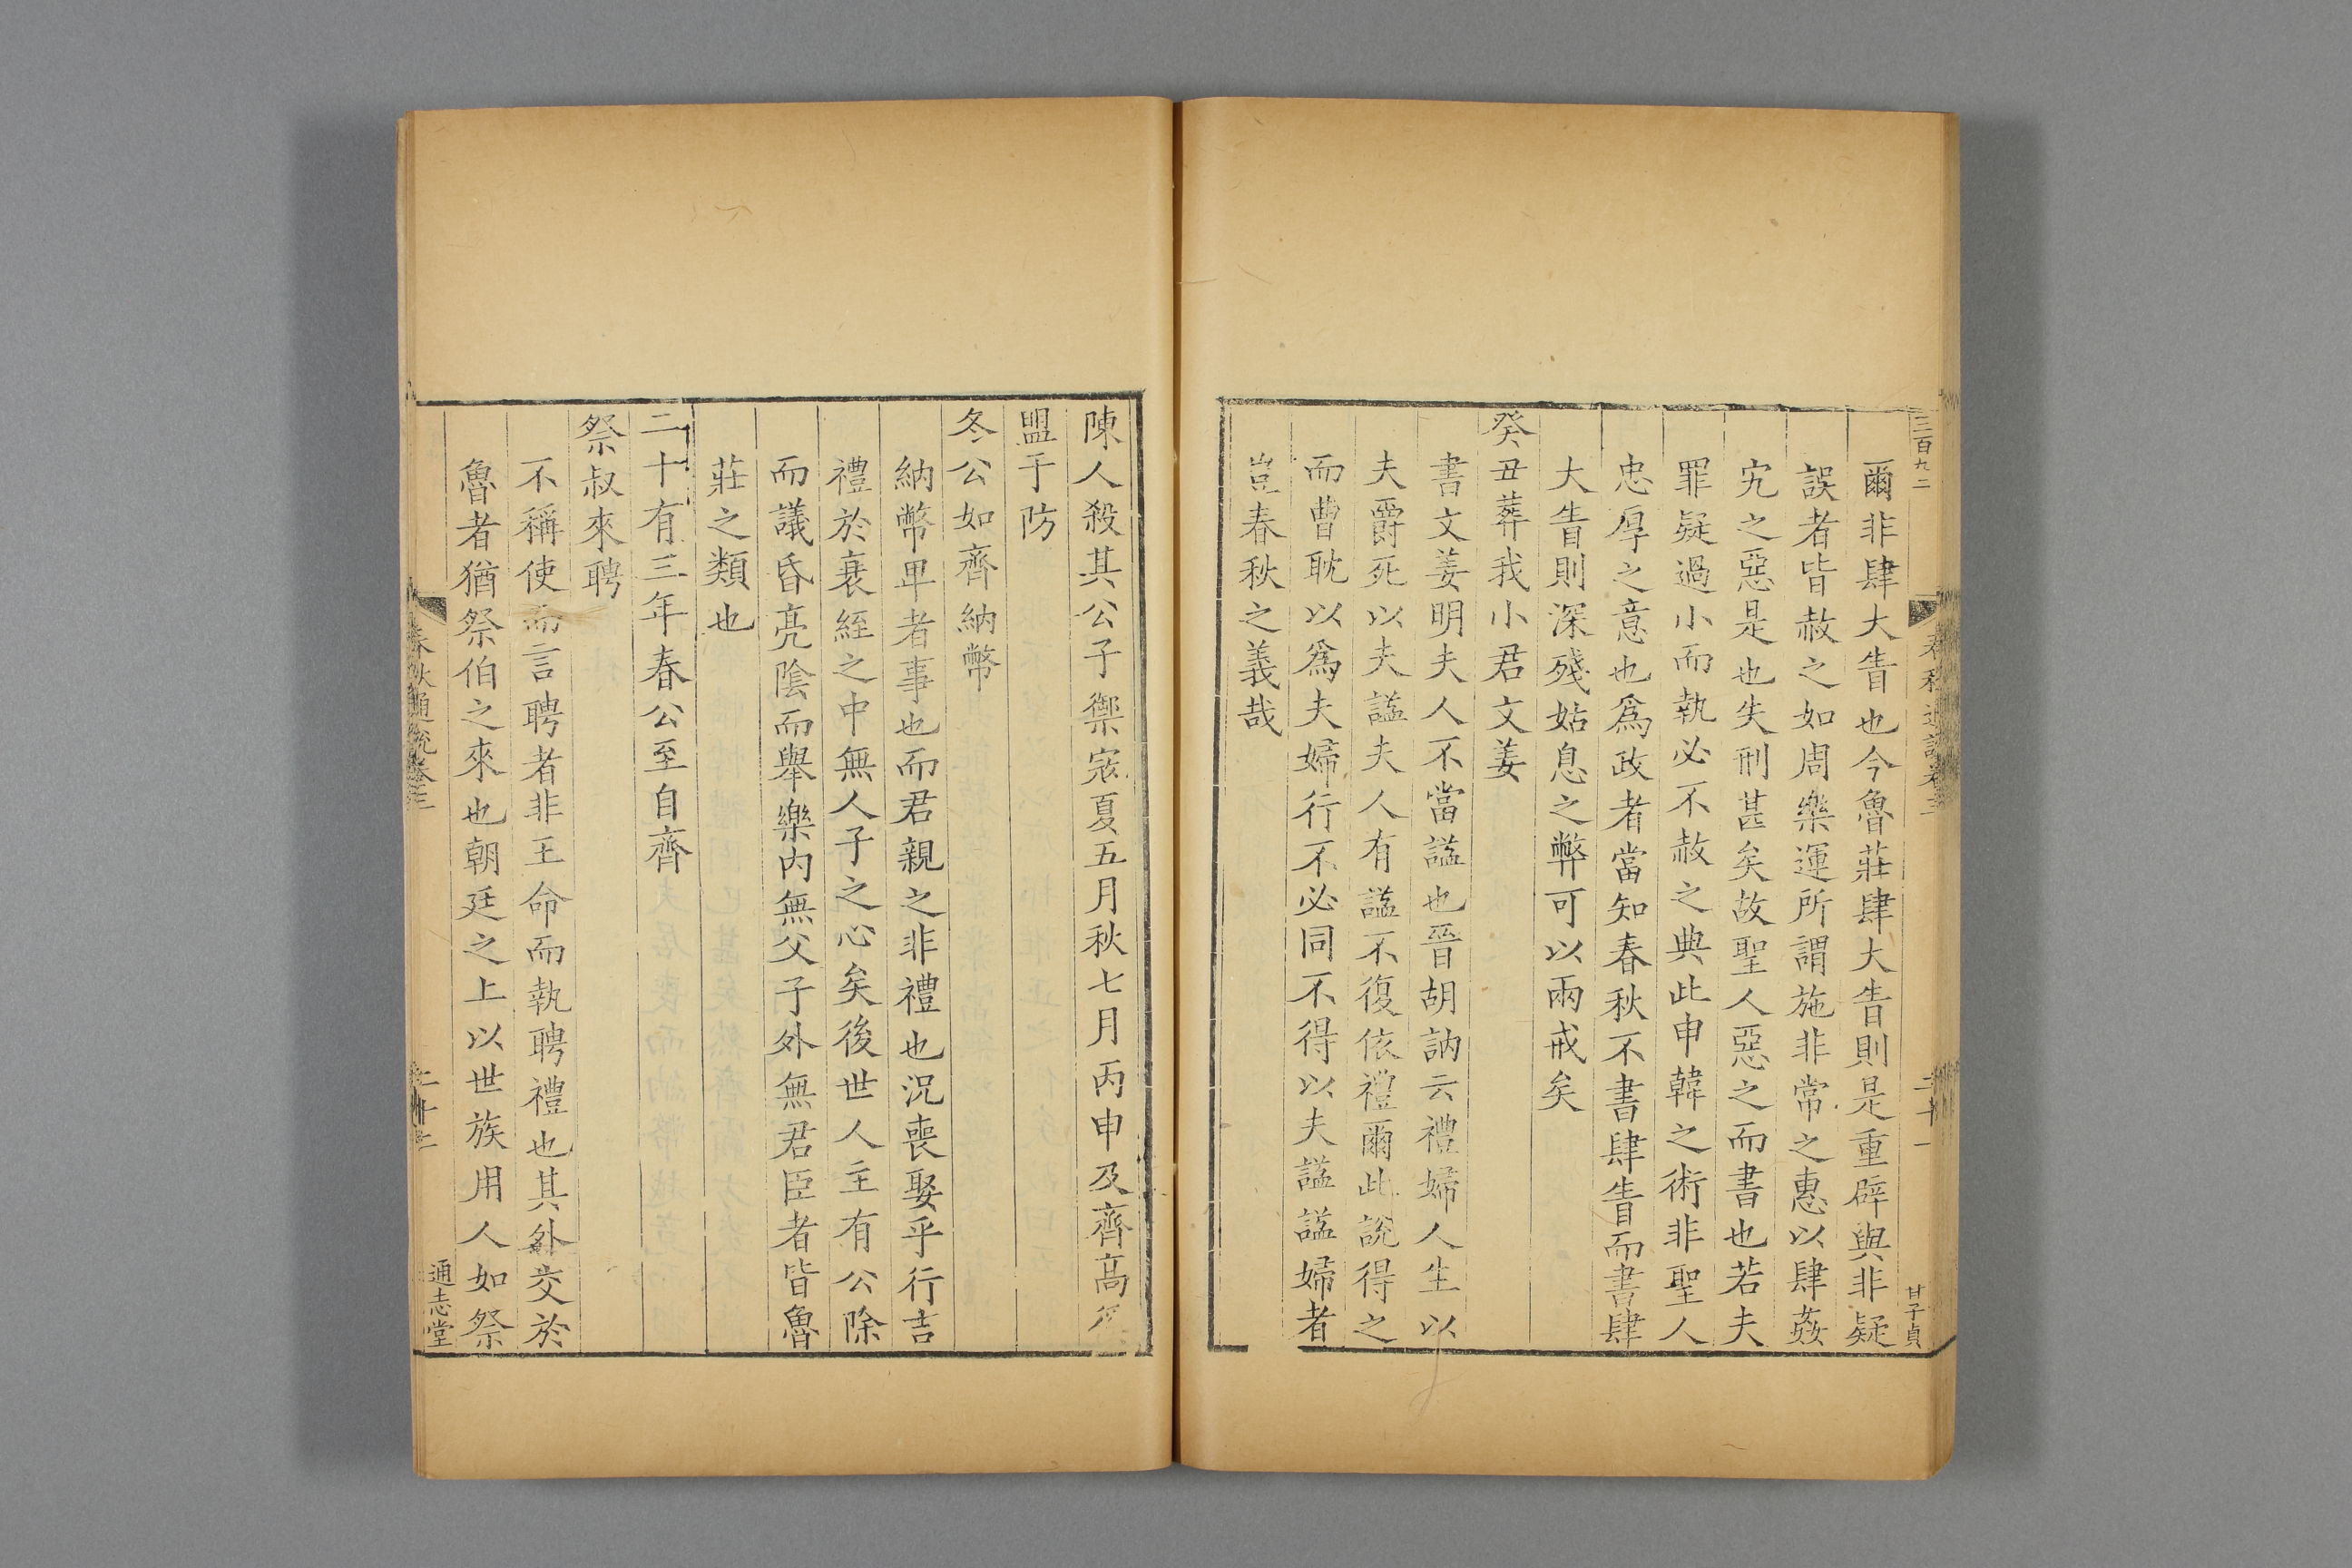 三百九二
春秋通說卷三
二十一
甘子貞
爾非肆大眚也今魯莊肆大眚則是重辟與非疑
誤者皆赦之如周樂運所謂施非常之惠以肆姦
宄之惡是也失刑甚矣故聖人惡之而書也若夫
罪疑過小而執必不赦之典此申韓之術非聖人
忠厚之意也為政者當知春秋不書肆眚而書肆
大眚則深殘姑息之弊可以兩戒矣
癸丑葬我小君文姜
書文姜明夫人不當諡也晉胡訥云禮婦人生以
夫爵死以夫諡夫人有諡不復依禮爾此說得之
而曹耽以為夫婦行不必同不得以夫諡諡婦者
豈春秋之義哉
陳人殺其公子禦寇夏五月秋七月丙申及齊高
盟于防
冬公如齊納幣
納幣卑者事也而君親之非禮也況喪娶乎行吉
禮於衰絰之中無人子之心矣後世人主有公除
而議昏亮陰而舉樂內無父子外無君臣者皆魯
莊之類也
二十有三年春公至自齊
祭叔來聘
不稱使而言聘者非王命而執聘禮也其外交於
魯者猶祭伯之來也朝廷之上以世族用人如祭
春秋通說卷三
通志堂